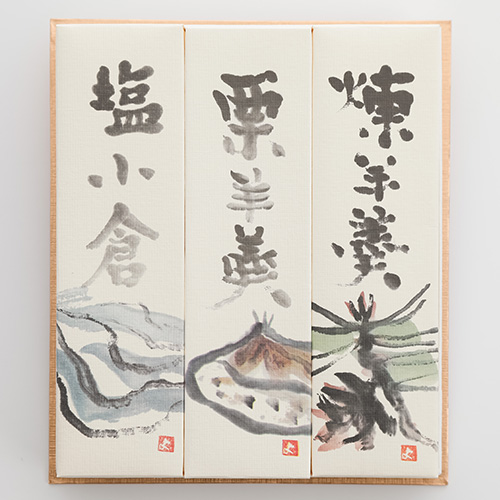 煉羊羹
栗羊羹
塩小倉